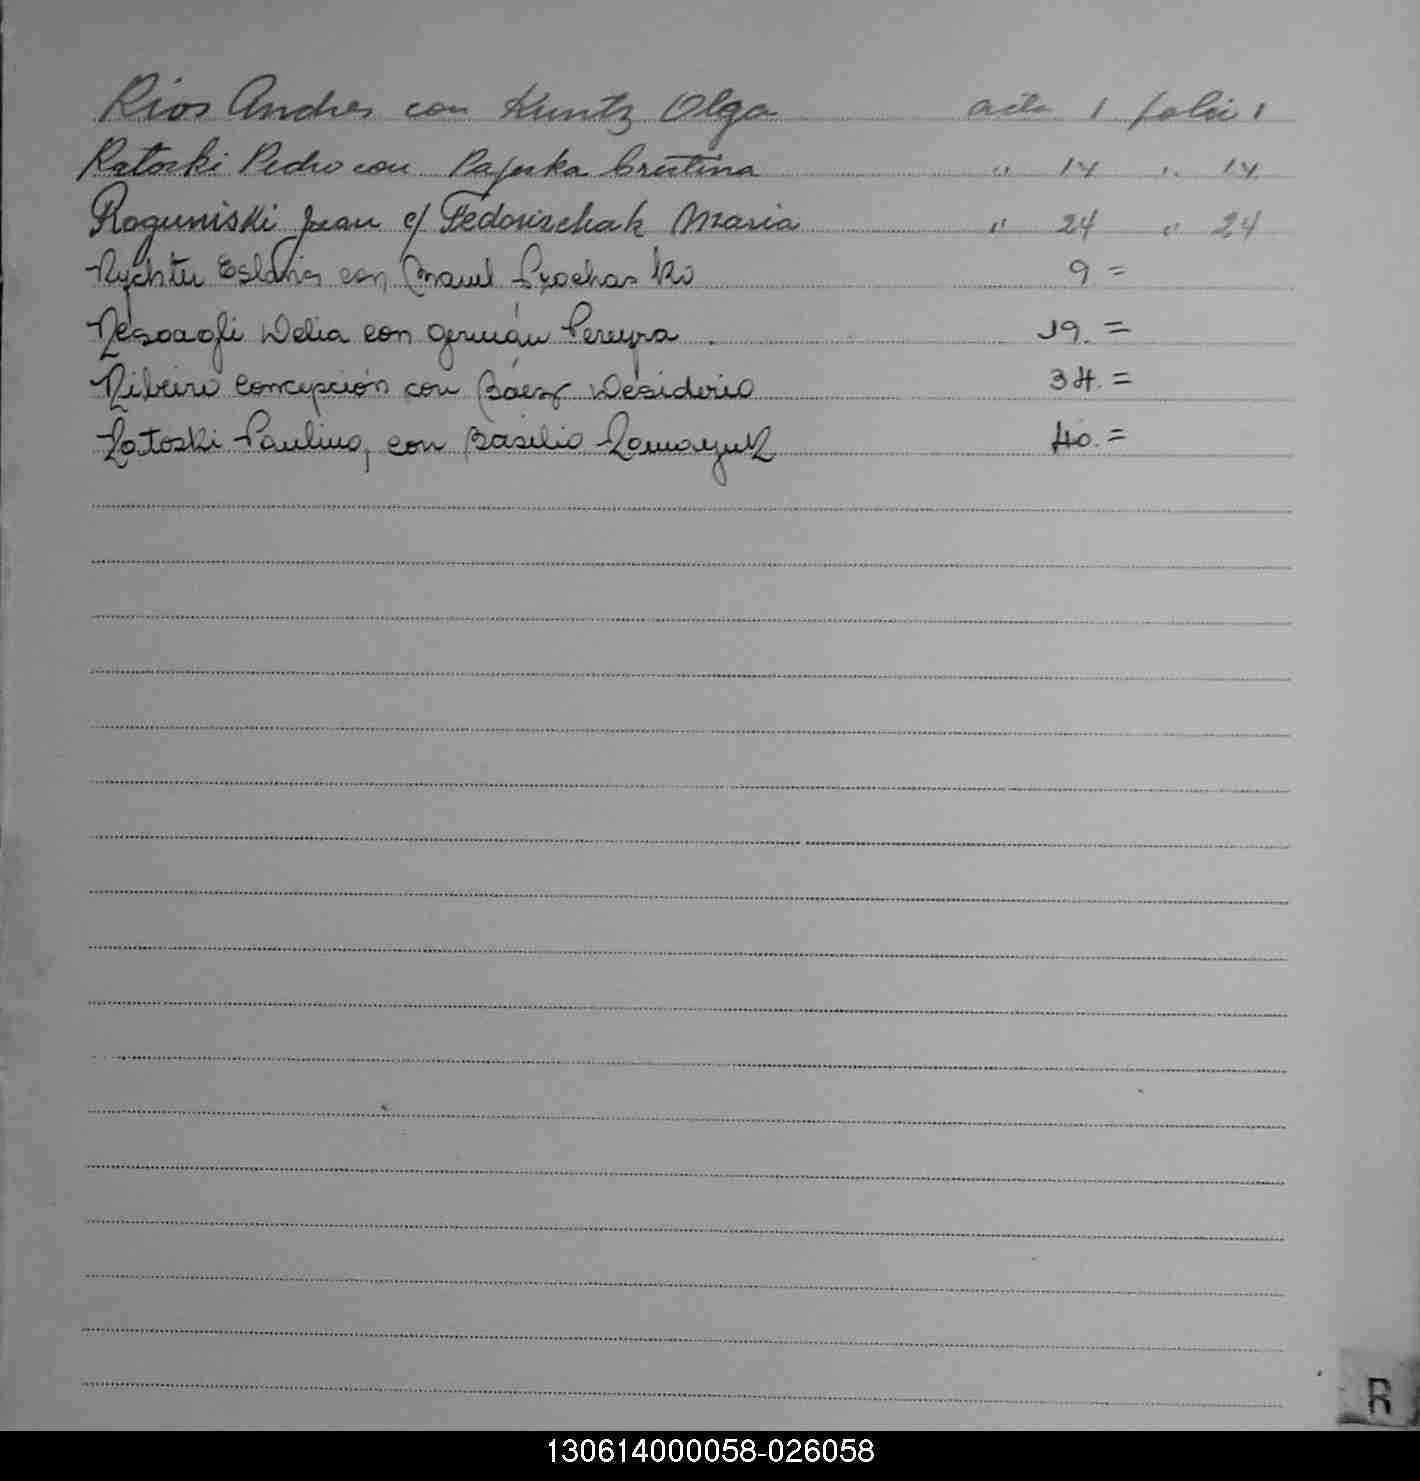 Rios Andres con Kuntz Olga acta 1 folio 1
Ratoski Pedro con Pajuska Cristina " 14 " 14
Roguniski Juan c/ Fedorischak Maria " 24 " 24
Rychter con Prochasko 9 =
Delia con Germán Pereyra . 19. =
Ribeiro Concepción con Báez Desiderio 34. =
Ratoski Paulina, con Basilio 40. =
R
130614000058-026058